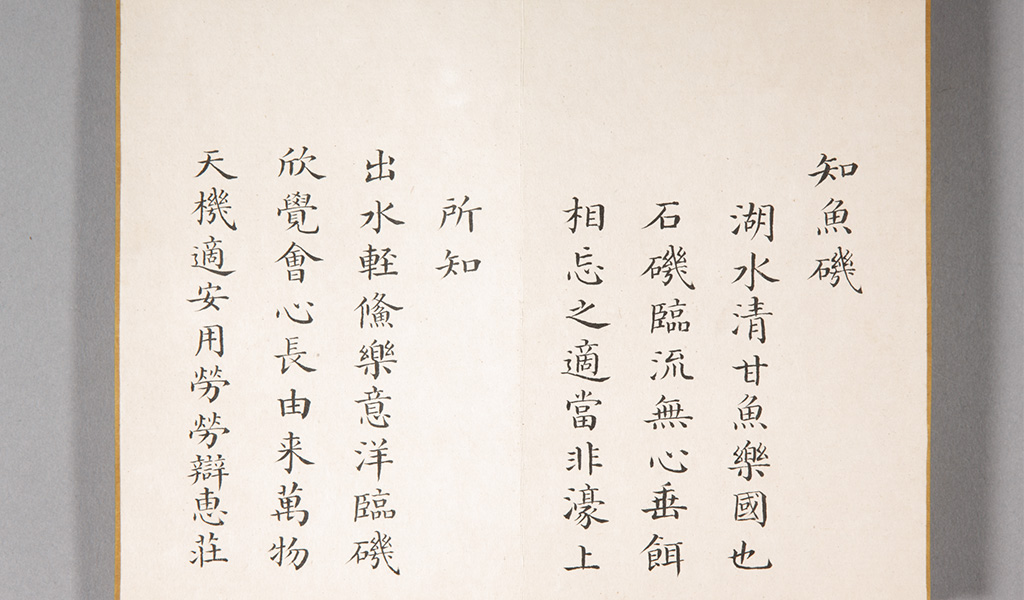 知魚磯
湖水清甘魚樂國也
石磯臨流無心垂餌
相忘之適當非濠上
所知
出水軽鯈樂意洋臨磯
欣覺會心長由来萬物
天機適安用勞勞辯恵莊